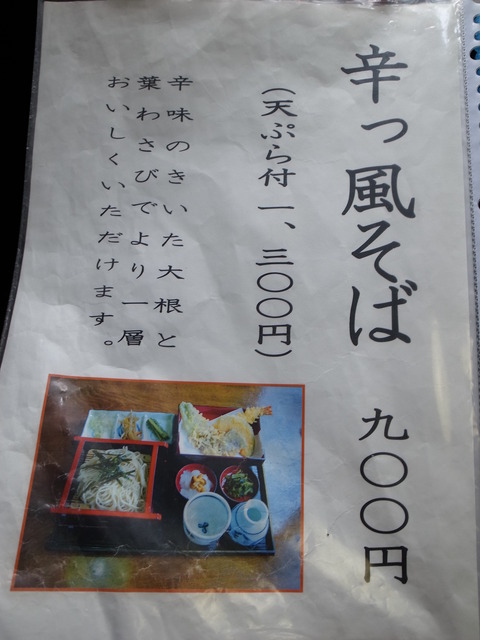 辛っ風そば 九〇〇円
（天ぷら付一、三〇〇円）
辛味のきいた大根と
葉わさびでより一層
おいしくいただけます。